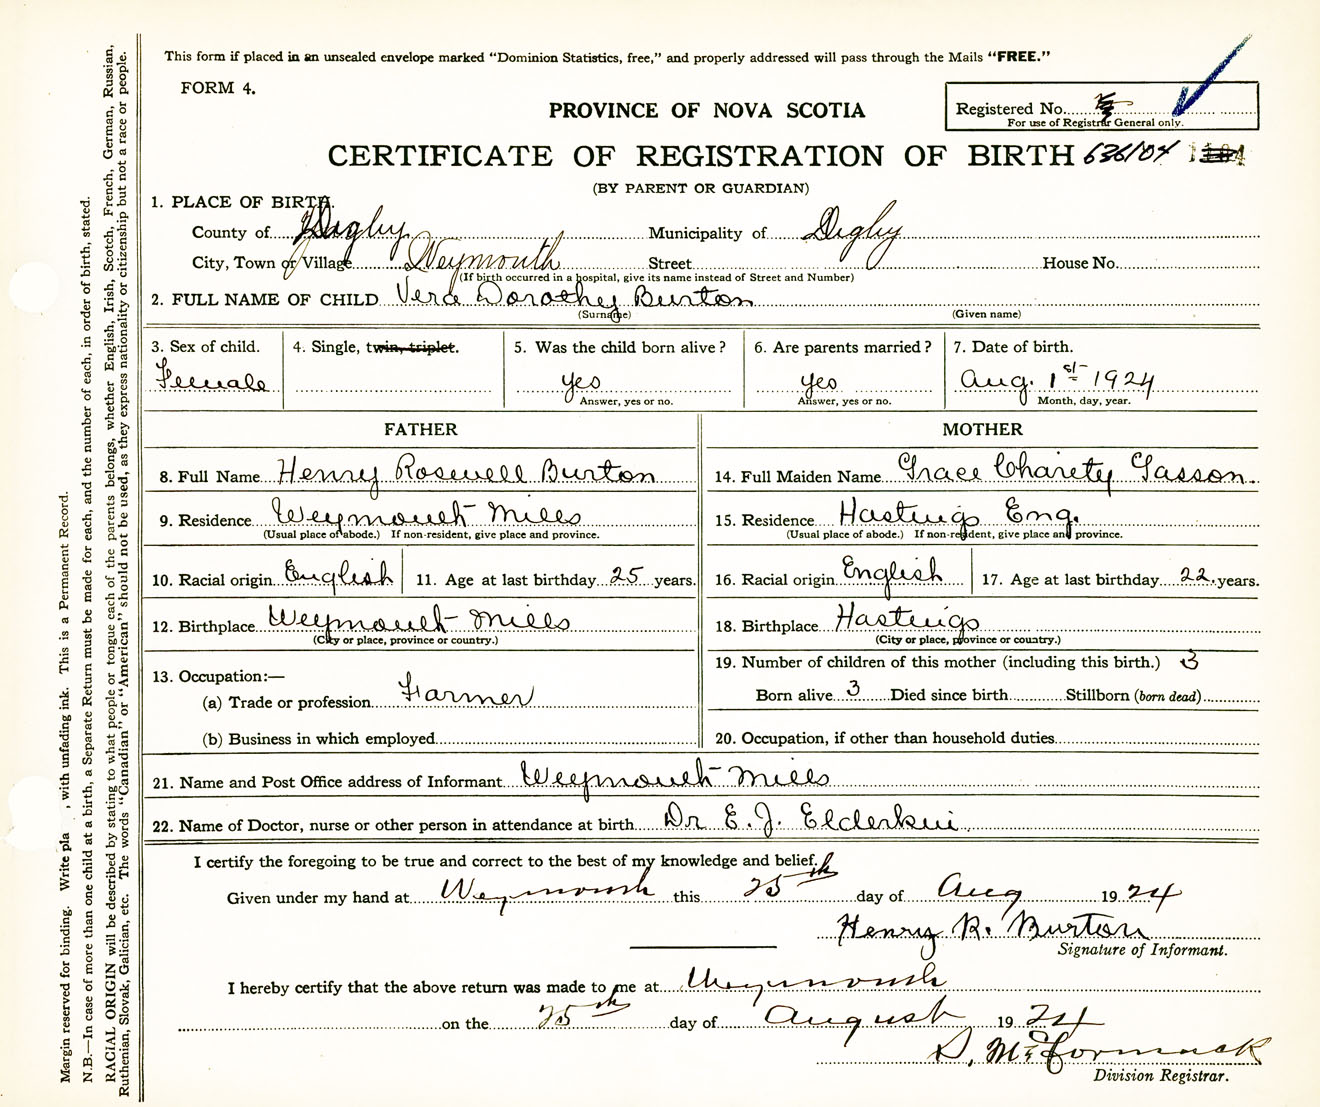 This form if placed in an unsealed envelope marked "Dominion Statistics, free," and properly addressed will pass through the Mails "FREE."
FORM 4.
PROVINCE OF NOVA SCOTIA
Registered No.
For use of Registrar General only.
CERTIFICATE OF REGISTRATION OF BIRTH 636104
(BY PARENT OR GUARDIAN)
1. PLACE OF BIRTH.
County of Digby Municipality of Digby
City, Town or Village Weymouth Street House No.
(If birth occurred in a hospital, give its name instead of Street and Number)
2. FULL NAME OF CHILD Vera Dorothy Burton
(Surname) (Given name)
3. Sex of child. 4. Single, twin, triplet. 5. Was the child born alive? 6. Are parents married? 7. Date of birth.
Female yes yes Aug. 1st 1924
Answer, yes or no. Answer, yes or no. Month, day, year.
FATHER MOTHER
8. Full Name Henry Roswell Burton 14. Full Maiden Name Grace Charety Gasson.
9. Residence Weymouth Mills 15. Residence Hastings Eng.
(Usual place of abode.) If non-resident, give place and province. (Usual place of abode.) If non-resident, give place and province.
10. Racial origin English 11. Age at last birthday 25 years. 16. Racial origin English 17. Age at last birthday 22. years.
12. Birthplace Weymouth Mills 18. Birthplace Hastings
(City or place, province or country.) (City or place, province or country.)
13. Occupation:— 19. Number of children of this mother (including this birth.) 3
(a) Trade or profession Farmer Born alive 3 Died since birth Stillborn (born dead)
(b) Business in which employed 20. Occupation, if other than household duties
21. Name and Post Office address of Informant Weymouth Mills
22. Name of Doctor, nurse or other person in attendance at birth Dr E. J. Elderkin
I certify the foregoing to be true and correct to the best of my knowledge and belief.
Given under my hand at Weymouth this 25th day of Aug 1924
Henry R. Burton
Signature of Informant.
I hereby certify that the above return was made to me at Weymouth
on the 25th day of August 1924
D. McCormack
Division Registrar.
Margin reserved for binding. Write pla , with unfading ink. This is a Permanent Record.
N.B.—In case of more than one child at a birth, a Separate Return must be made for each, and the number of each, in order of birth, stated.
RACIAL ORIGIN will be described by stating to what people or tongue each of the parents belongs, whether English, Irish, Scotch, French, German, Russian,
Ruthenian, Slovak, Galician, etc. The words "Canadian" or "American" should not be used, as they express nationality or citizenship but not a race or people.